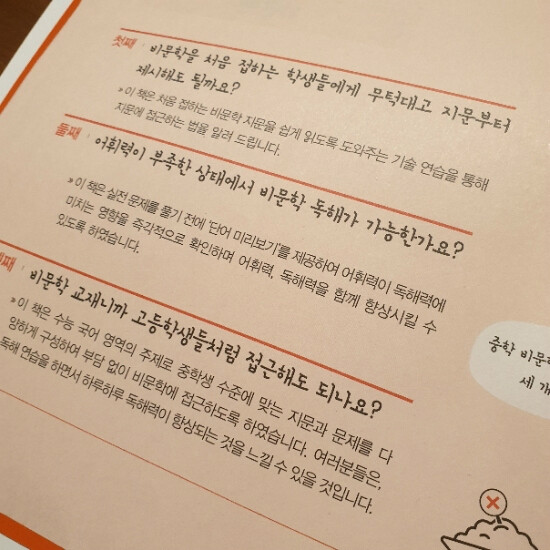 첫째 · 비문학을 처음 접하는 학생들에게 무턱대고 지문부터
제시해도 될까요?
» 이 책은 처음 접하는 비문학 지문을 쉽게 읽도록 도와주는 기술 연습을 통해
지문에 접근하는 법을 알려 드립니다.
둘째 · 어휘력이 부족한 상태에서 비문학 독해가 가능한가요?
» 이 책은 실전 문제를 풀기 전에 '단어 미리보기'를 제공하여 어휘력이 독해력에
미치는 영향을 즉각적으로 확인하며 어휘력, 독해력을 함께 향상시킬 수
있도록 하였습니다.
째 · 비문학 교재니까 고등학생들처럼 접근해도 되나요?
» 이 책은 수능 국어 영역의 주제로 중학생 수준에 맞는 지문과 문제를 다
양하게 구성하여 부담 없이 비문학에 접근하도록 하였습니다. 여러분들은,
독해 연습을 하면서 하루하루 독해력이 향상되는 것을 느낄 수 있을 것입니다.
중학 비문학
세 개